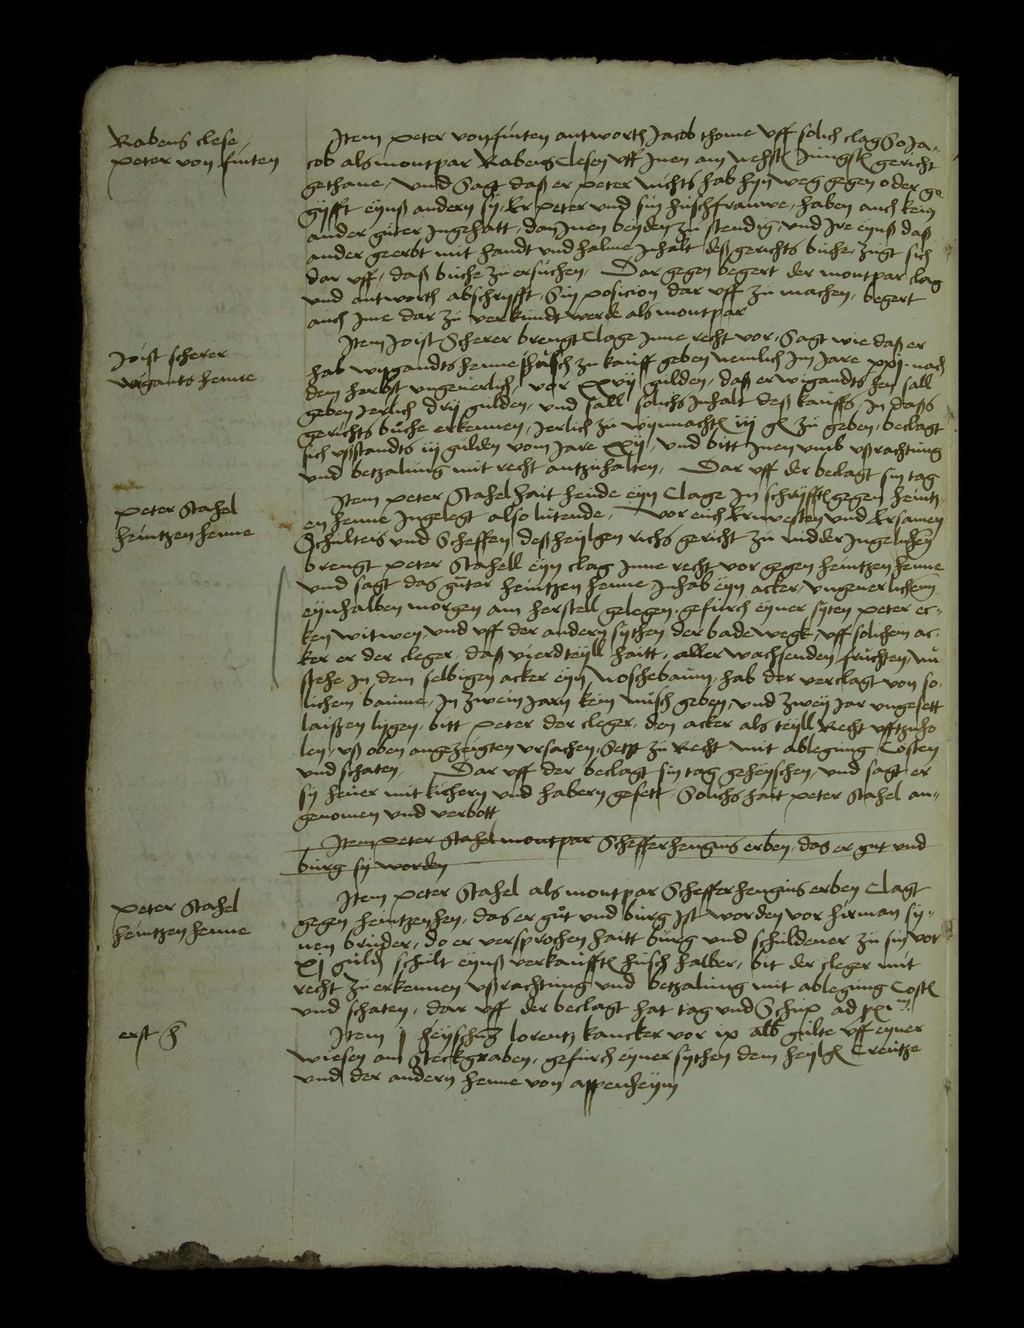 Rabens clese
peter von finten
Item peter von finten antworth Jacob thome vff solich clag So Ja-
cob als montpar Rabens Clesen vff Inen am nehst Jungst gericht
gethane, vnd Sagt daß er peter nichts hab hyn weg gegen oder ge
gyfft eynß andern sy, Er peter vnd sin hußfrauwe, haben auch kein
ander guter Ingehatt, dan Inen beyden zu stendig, vnd Ire eynß daß
ander geerbt mit handt vnd halme Inhalt deß gerichts buche, zugt sich
dar vff, daß buche zu ersuchen, Dar gegen begert der montpar clag
vnd antworth abschryfft, Sin posicion dar vff zu machen, begert
auch Ime dar zu verkundt werde als montpar
Joist scherer
wigants henne
Item Joist Scherer brengt Clage Inne recht vor, Sagt wie daß er
hab wygandts henne hußch zu kauff geben nemlich Im Jare xxj nach
dem herbst vngeuerlich, vor xxvij gulden, daß er wigandts hen sall
geben Jerlich drij gulden, vnd sall solichs Inhalt deß kauffs, In daß
gerichts buche erkennen, Jerlich zu wynnacht iij g zu geben, beclagt
sich vßstandts iij gulden vom Jare xxij, vnd bitt Inen vmb vßrachtung
vnd betzalung mit recht antzuhalten, Dar vff der beclagt sin tag
peter Stahel
heintzen henne
Item peter Stahel hait heude eyn Clage In schryfft gegen heintz
en henne Ingelegt also lutende, Vor euch Ernvesten vnd Ersamen
Schulteis vnd Scheffen deß heyligen richs gericht zu nidder Ingelnheym
brengt peter Stahell eyn clag Inne recht vor gegen heintzen henne
vnd sagt das guter heintzen henne Inhab eyn acker, vngeuerlichem
eynhalben morgen am herstell gelegen, gefurch eyner syten peter ec-
ken witwen, vnd vff der andern sythen der badewegk, vff solichem ac-
ker er der cleger, daß vierdteyll haitt, aller wachsenden fruchten, nu
stehe In dem selbigen acker eyn noßchebaum, hab der verclagt von so-
lichem baume, In zwein Jarn kein nuß geben, vnd zwey Jar vngesett
laißen lygen, bitt peter der cleger, den acker als teyll Recht vfftzuho
len, vß oben angezeigten vrsachen, Setzt zu Recht mit ablegung Costen
vnd schaten Dar vff der beclagt sin tag geheyschen, vnd sagt er
sy heuer mit kichern vnd habern gesett Solichs hait peter Stahel an-
genomen vnd verbott
Item peter Stahel montpar Scheffer hengins erben, das er gut vnd
burg sy worden
peter Stahel
heintzen henne
Item peter Stahel als montpar Scheffer hengins erben Clagt
gegen heintzen hen, das er gut vnd burg Ist worden vor herman sy-
nen bruder, do er versprochen haitt burg vnd schuldener zu sin vor
xj guld schult eynß verkaufft huß halber, bit der cleger mit
recht zu erkennen vßrachtung vnd betzalung mit ablegung Cost
vnd schaten, dar vff der beclagt hat tag vnd Schup ad
erst h
Item j heyschung lorentz kancker vor ix alb gulte vff eyner
wiesen am Steckgraben, gefurch eyner sythen dem heylg Creutze
vnd der andern henne von appenheym